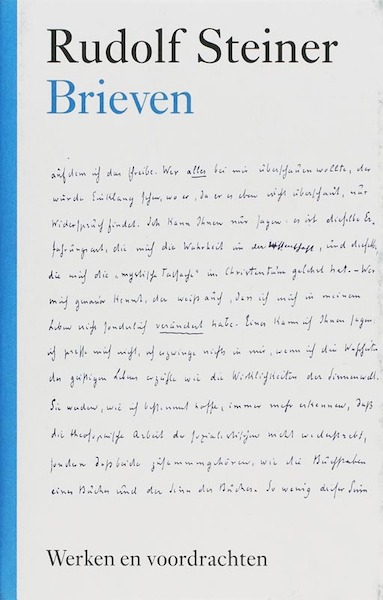 Rudolf Steiner
Brieven
auf dem ich das schreibe. Wer alles bei mir überschauen wollte, der
würde Einklang sehen, wo er, da er es eben nicht überschaut, nur
Widerspruch findet. Ich kann Ihnen nur sagen: es ist dieselbe Er-
fahrungsart, die mich die Wahrheit in der und dieselbe,
die mich die „mystische Tatsache“ im Christentum gelehrt hat. – Wer
mich genauer kennt, der weiß auch, dass ich mich in meinem
Leben nicht sonderlich verändert habe. Eines kann ich Ihnen sagen:
ich presse mich nicht, ich erzwinge nichts in mir, wenn ich die Wahrheiten
des geistigen Lebens erzähle wie die Wirklichkeiten der Sinnenwelt.
Sie werden, wie ich bestimmt hoffe, immer mehr erkennen, daß
die theosophische Arbeit der sozialistischen nicht widerstrebt,
sondern daß beide zusammengehören, wie die Buchstaben
eines Buches und der Sinn des Buches. So wenig dieser Sinn
Werken en voordrachten